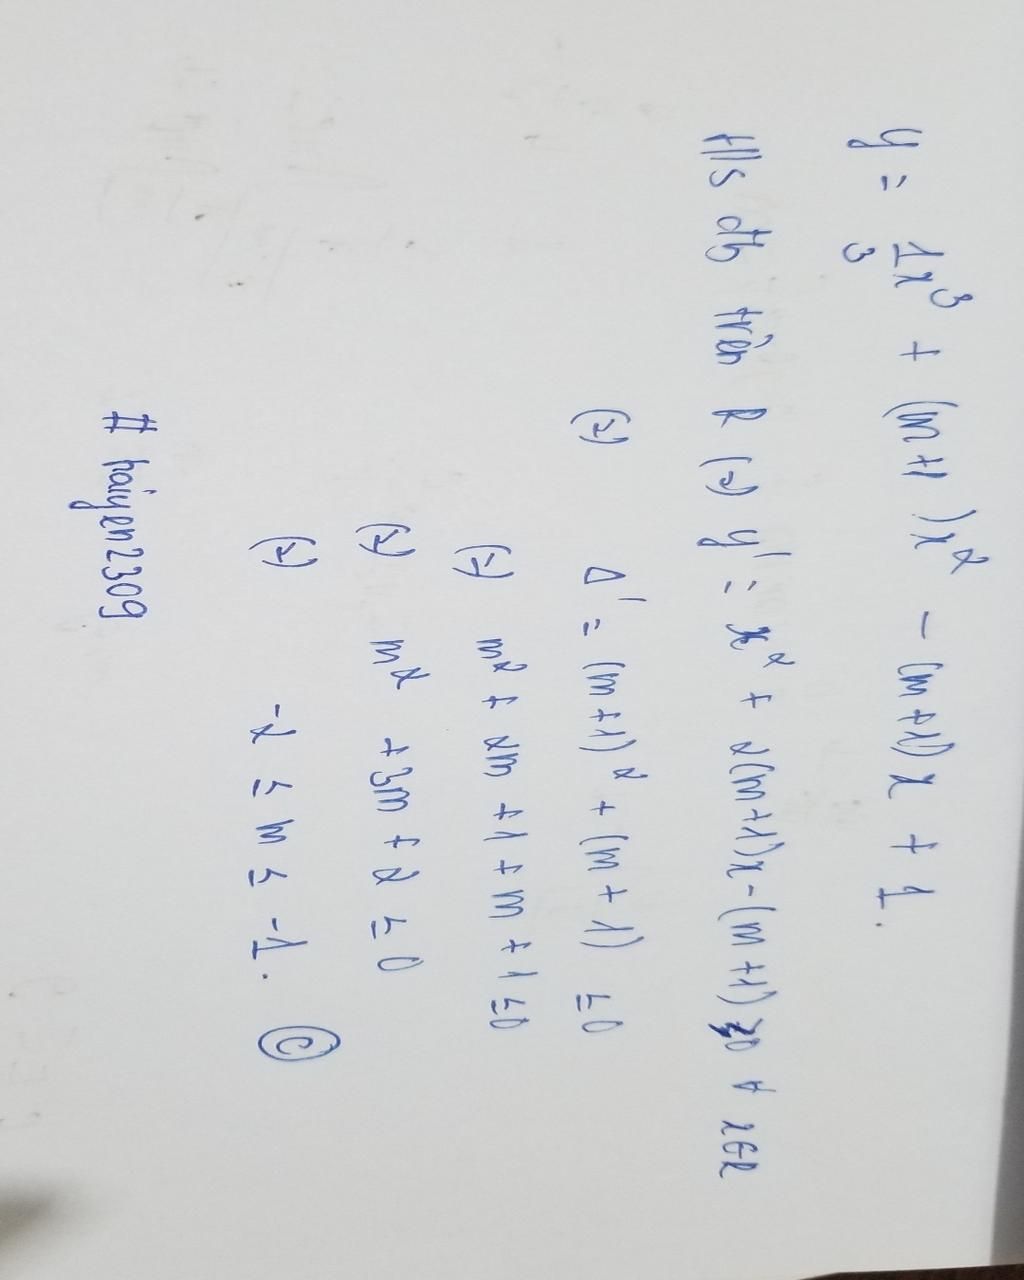 y = 1/3 x³ + (m+1)x² - (m+1)x + 1.
H/s đb trên R (=) y' = x² + 2(m+1)x - (m+1) ≥0 ∀ x∈R
(=) Δ' = (m+1)² + (m+1) ≤0
(=) m² + 2m +1 + m +1 ≤0
(=) m² +3m +2 ≤ 0
(=) -2 ≤ m ≤ -1. Ⓒ
# haiyen2309